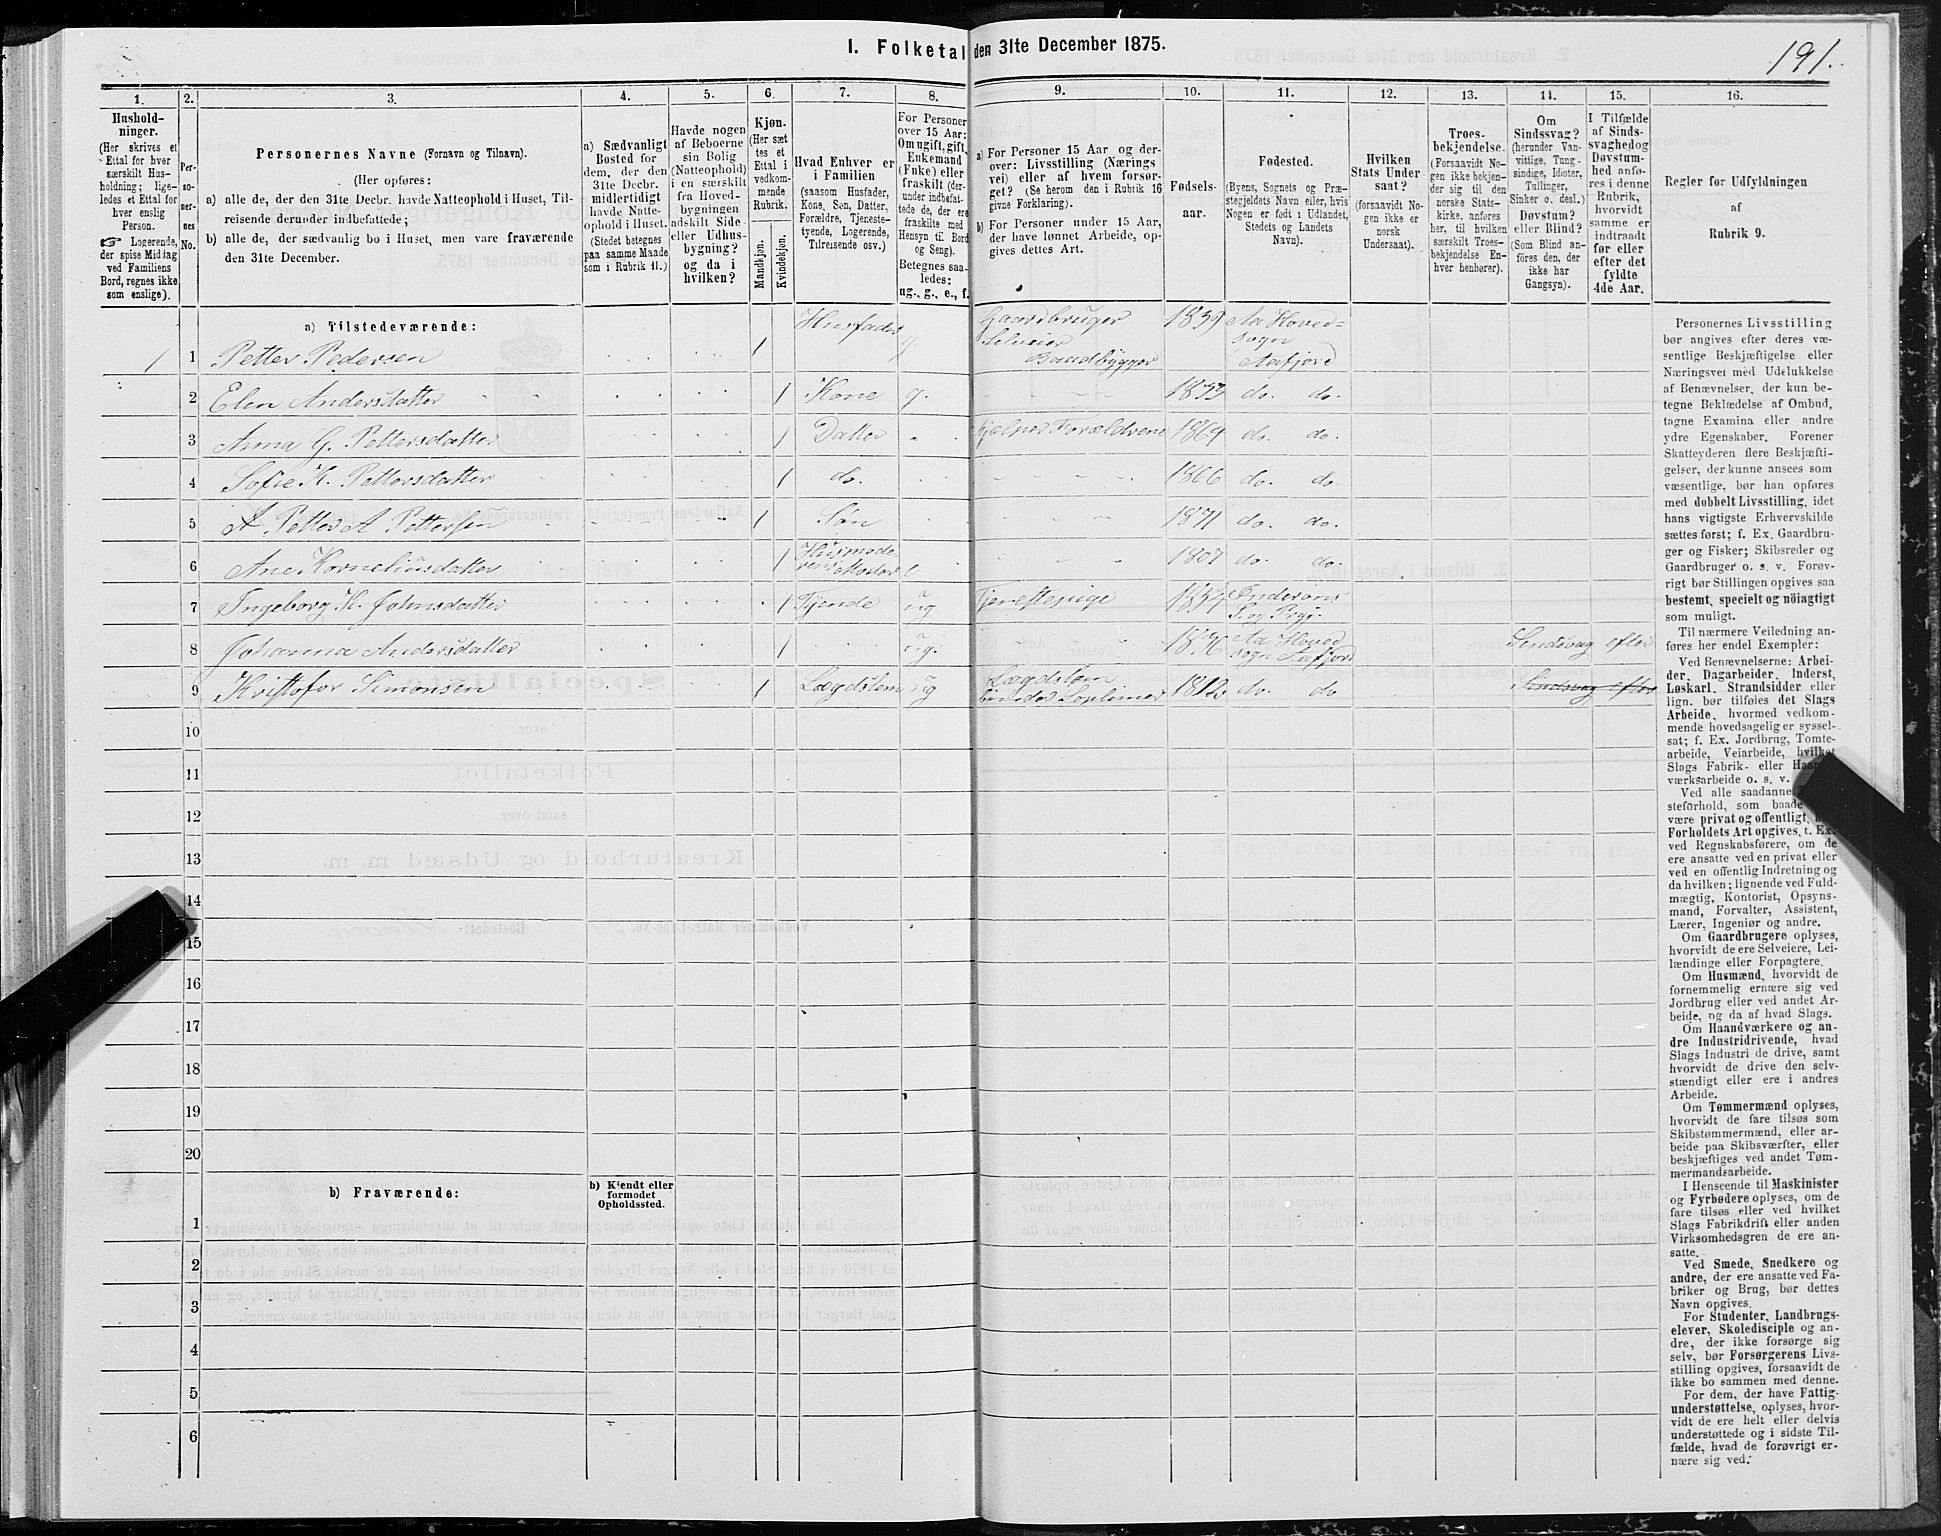 I. Folketal den 31te December 1875.
191.
1.
2.
3.
4.
5.
6.
7.
8.
9.
10.
11.
12.
13.
14.
15.
16.
Hushold-
ninger.
(Her skrives et
Ettal for hver
særskilt Hus-
holdning; lige-
ledes et Ettal for
hver enslig
Person.
☞ Logerende,
der spise Middag
ved Familiens
Bord, regnes ikke
som enslige).
Per-
so-
ner-
nes
No.
Personernes Navne (Fornavn og Tilnavn).
(Her opføres:
a) alle de, der den 31te Decbr. havde Natteophold i Huset, Til-
reisende derunder indbefattede;
b) alle de, der sædvanlig bo i Huset, men vare fraværende
den 31te December.
a) Sædvanligt
Bosted for
dem, der den
31te Decbr.
midlertidigt
havde Natte-
ophold i Huset.
(Stedet betegnes
paa samme Maade
som i Rubrik 11.)
Havde nogen
af Beboerne
sin Bolig
(Natteophold)
i en særskilt
fra Hoved-
bygningen
adskilt Side
eller Udhus-
bygning?
og da i
hvilken?
Kjøn.
(Her sæt
tes et
Ettal i
vedkom-
mende
Rubrik.
Mandkjøn.
Kvindekjøn.
Hvad Enhver er
i Familien
(saasom Husfader,
Kone, Søn, Datter,
Forældre, Tjeneste-
tyende, Logerende,
Tilreisende osv.)
For Personer
over 15 Aar:
Om ugift, gift,
Enkemand
(Enke) eller
fraskilt (der-
under indbefat-
tede de, der ere
fraskilte med
Hensyn til Bord
og Seng).
Betegnes saa-
ledes:
ug., g., e., f.
a) For Personer 15 Aar og der-
over: Livsstilling (Nærings
vei) eller af hvem forsør-
get? (Se herom den i Rubrik 16
givne Forklaring).
b) For Personer under 15 Aar,
der have lønnet Arbeide, op-
gives dettes Art.
Fødsels-
aar.
Fødested.
(Byens, Sognets og Præ-
stegjeldets Navn eller, hvis
Nogen er født i Udlandet,
Stedets og Landets
Navn).
Hvilken
Stats Under
saat?
(forsaavidt No-
gen ikke er
norsk
Undersaat).
Troes-
bekjendelse.
(Forsaavidt No-
gen ikke bekjen-
der sig til den
norske Stats-
kirke, anføres
her, til hvilken
særskilt Troes-
bekjendelse En-
hver henhører).
Om
Sindssvag?
(herunder Van-
vittige, Tung-
sindige, Idioter,
Tullinger,
Sinker o. desl.)
Døvstum?
eller Blind?
(Som Blind an-
føres den, der
ikke har
Gangsyn).
I Tilfælde
af Sinds-
svaghed og
Døvstum-
hed anfø-
res i denne
Rubrik,
hvorvidt
samme er
indtraadt
før eller
efter det
fyldte
4de Aar.
Regler for Udfyldningen
af
Rubrik 9.
a) Tilstedeværende:
1 1 Petter Pedersen 1 Husfader g. Gaardbruger Selveier Baadbygger 1839 Aa Hoved=sogn Aafjord
2 Elen Andersdatter 1 Kone g. 1833 do. do.
3 Anna G. Pettersdatter 1 Datter Hjelper Forældrene 1864 do. do.
4 Sofie K. Pettersdatter 1 do. 1866 do. do.
5 A. Petter A Pettersen 1 Søn 1871 do. do.
6 Ane Korneliusdatter 1 Husmoderens Moder e 1807 do. do.
7 Ingeborg K. Johnsdatter 1 Tjende ug Tjenestepige 1857 Inderøens S. og Prgj.
8 Johanna Andersdatter 1 ug. 1836 Aa Hoved sogn Aafjord Sindsvag efter
9 Kristofer Simonsen 1 Lægdslem ug Lægdslem 1812 do. do Sindsvag efter
10
11
12
13
14
15
16
17
18
19
20
b) Fraværende:
b) Kjendt eller
formodet
Opholdssted.
1
2
3
4
5
6
Personernes Livsstilling
bør angives efter deres væ-
sentlige Beskjæftigelse eller
Næringsvei med Udelukkelse
af Benævnelser, der kun be-
tegne Beklædelse af Ombud,
tagne Examina eller andre
ydre Egenskaber. Forener
Skatteyderen flere Beskjæfti-
gelser, der kunne ansees som
væsentlige, bør han opføres
med dobbelt Livsstilling, idet
hans vigtigste Erhvervskilde
sættes først; f. Ex. Gaardbru-
ger og Fisker; Skibsreder og
Gaardbruger o. s. v. Forøv-
rigt bør Stillingen opgives saa
bestemt, specielt og nöiagtigt
som muligt.
Til nærmere Veiledning an-
føres her endel Exempler:
Ved Benævnelserne: Arbei-
der, Dagarbeider, Inderst,
Løskarl, Strandsidder eller
lign. bør tilføies det Slags
Arbeide, hvormed vedkom-
mende hovedsagelig er syssel-
sat; f. Ex. Jordbrug, Tomte-
arbeide, Veiarbeide, hvilket
Slags Fabrik- eller Haand-
værksarbeide o. s. v.
Ved alle saadanne
steforhold, som baade
være privat og offentligt,
Forholdets Art opgives, t. Ex.
ved Regnskabsførere, om de
ere ansatte ved en privat eller
ved en offentlig Indretning og
da hvilken; lignende ved Fuld-
mægtig, Kontorist, Opsyns-
mand, Forvalter, Assistent,
Lærer, Ingeniør og andre.
Om Gaardbrugere oplyses,
hvorvidt de ere Selveiere, Lei-
lændinge eller Forpagtere.
Om Husmænd, hvorvidt de
fornemmelig ernære sig ved
Jordbrug eller ved andet Ar-
beide, og da af hvad Slags.
Om Haandværkere og an-
dre Industridrivende, hvad
Slags Industri de drive, samt
hvorvidt de drive den selv-
stændigt eller ere i andres
Arbeide.
Om Tømmermænd oplyses,
hvorvidt de fare tilsøs som
Skibstømmermænd, eller ar-
beide paa Skibsværfter, eller
beskjæftiges ved andet Tøm-
mermandsarbeide.
I Henseende til Maskinister
og Fyrbødere oplyses, om de
fare tilsøs eller ved hvilket
Slags Fabrikdrift eller anden
Virksomhedsgren de ere an-
satte.
Ved Smede, Snedkere og
andre, der ere ansatte ved Fa-
briker og Brug, bør dettes
Navn opgives.
For Studenter, Landbrugs-
elever, Skoledisciple og an-
dre, der ikke forsørge sig
selv, bør Forsørgerens Livs-
stilling opgives, forsaavidt de
ikke bo sammen med denne.
For dem, der have Fattig-
understøttelse, oplyses, hvor-
vidt de ere helt eller delvis
understøttede og i sidste Til-
fælde, hvad de forøvrigt er-
nære sig ved.